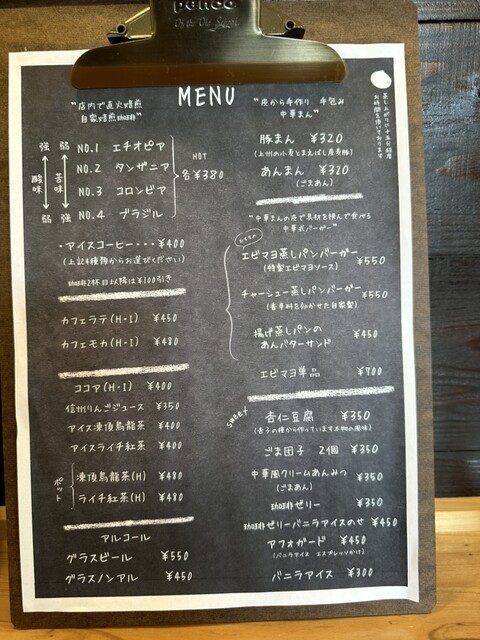 penco
MENU
"店内で直火焙煎
自家焙煎珈琲"
強 弱
酸味 苦味
弱 強
NO.1 エチオピア
NO.2 タンザニア
NO.3 コロンビア
NO.4 ブラジル
HOT
各¥380
・アイスコーヒー・・・¥400
(上記4種類からお選びください)
珈琲2杯目以降は¥100引き
カフェラテ(H・I) ¥450
カフェモカ(H・I) ¥480
ココア(H・I) ¥400
信州りんごジュース ¥350
アイス凍頂烏龍茶 ¥400
アイスライチ紅茶 ¥400
ポット
凍頂烏龍茶(H) ¥480
ライチ紅茶(H) ¥480
アルコール
グラスビール ¥550
グラスノンアル ¥450
"皮から手作り 手包み
中華まん"
蒸し上がりに十五分程度
お時間を頂いております
豚まん ¥320
(上州の小麦とまえばし産香豚)
あんまん ¥320
(ごまあん)
"中華まんの皮で具材を挟んで食べる
中華式バーガー"
おすすめ
エビマヨ蒸しパンバーガー ¥550
(特製エビマヨソース)
チャーシュー蒸しパンバーガー ¥550
(香辛料を効かせた自家製)
揚げ蒸しパンの
あんバターサンド ¥450
エビマヨ単品 ¥700
sweet
杏仁豆腐 ¥350
(杏子の種から作っています本物の風味)
ごま団子 2個 ¥350
中華風クリームあんみつ ¥350
(ごまあん)
珈琲ゼリー ¥350
珈琲ゼリーバニラアイスのせ ¥450
アフォガード ¥450
(バニラアイス エスプレッソかけ)
バニラアイス ¥300